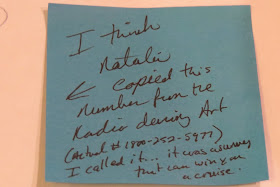 I think
Natalie
← copied this
number from the
Radio during Art
(Actual # 1800-252-5977)
I called it... it was a survey
that can win you
a cruise.